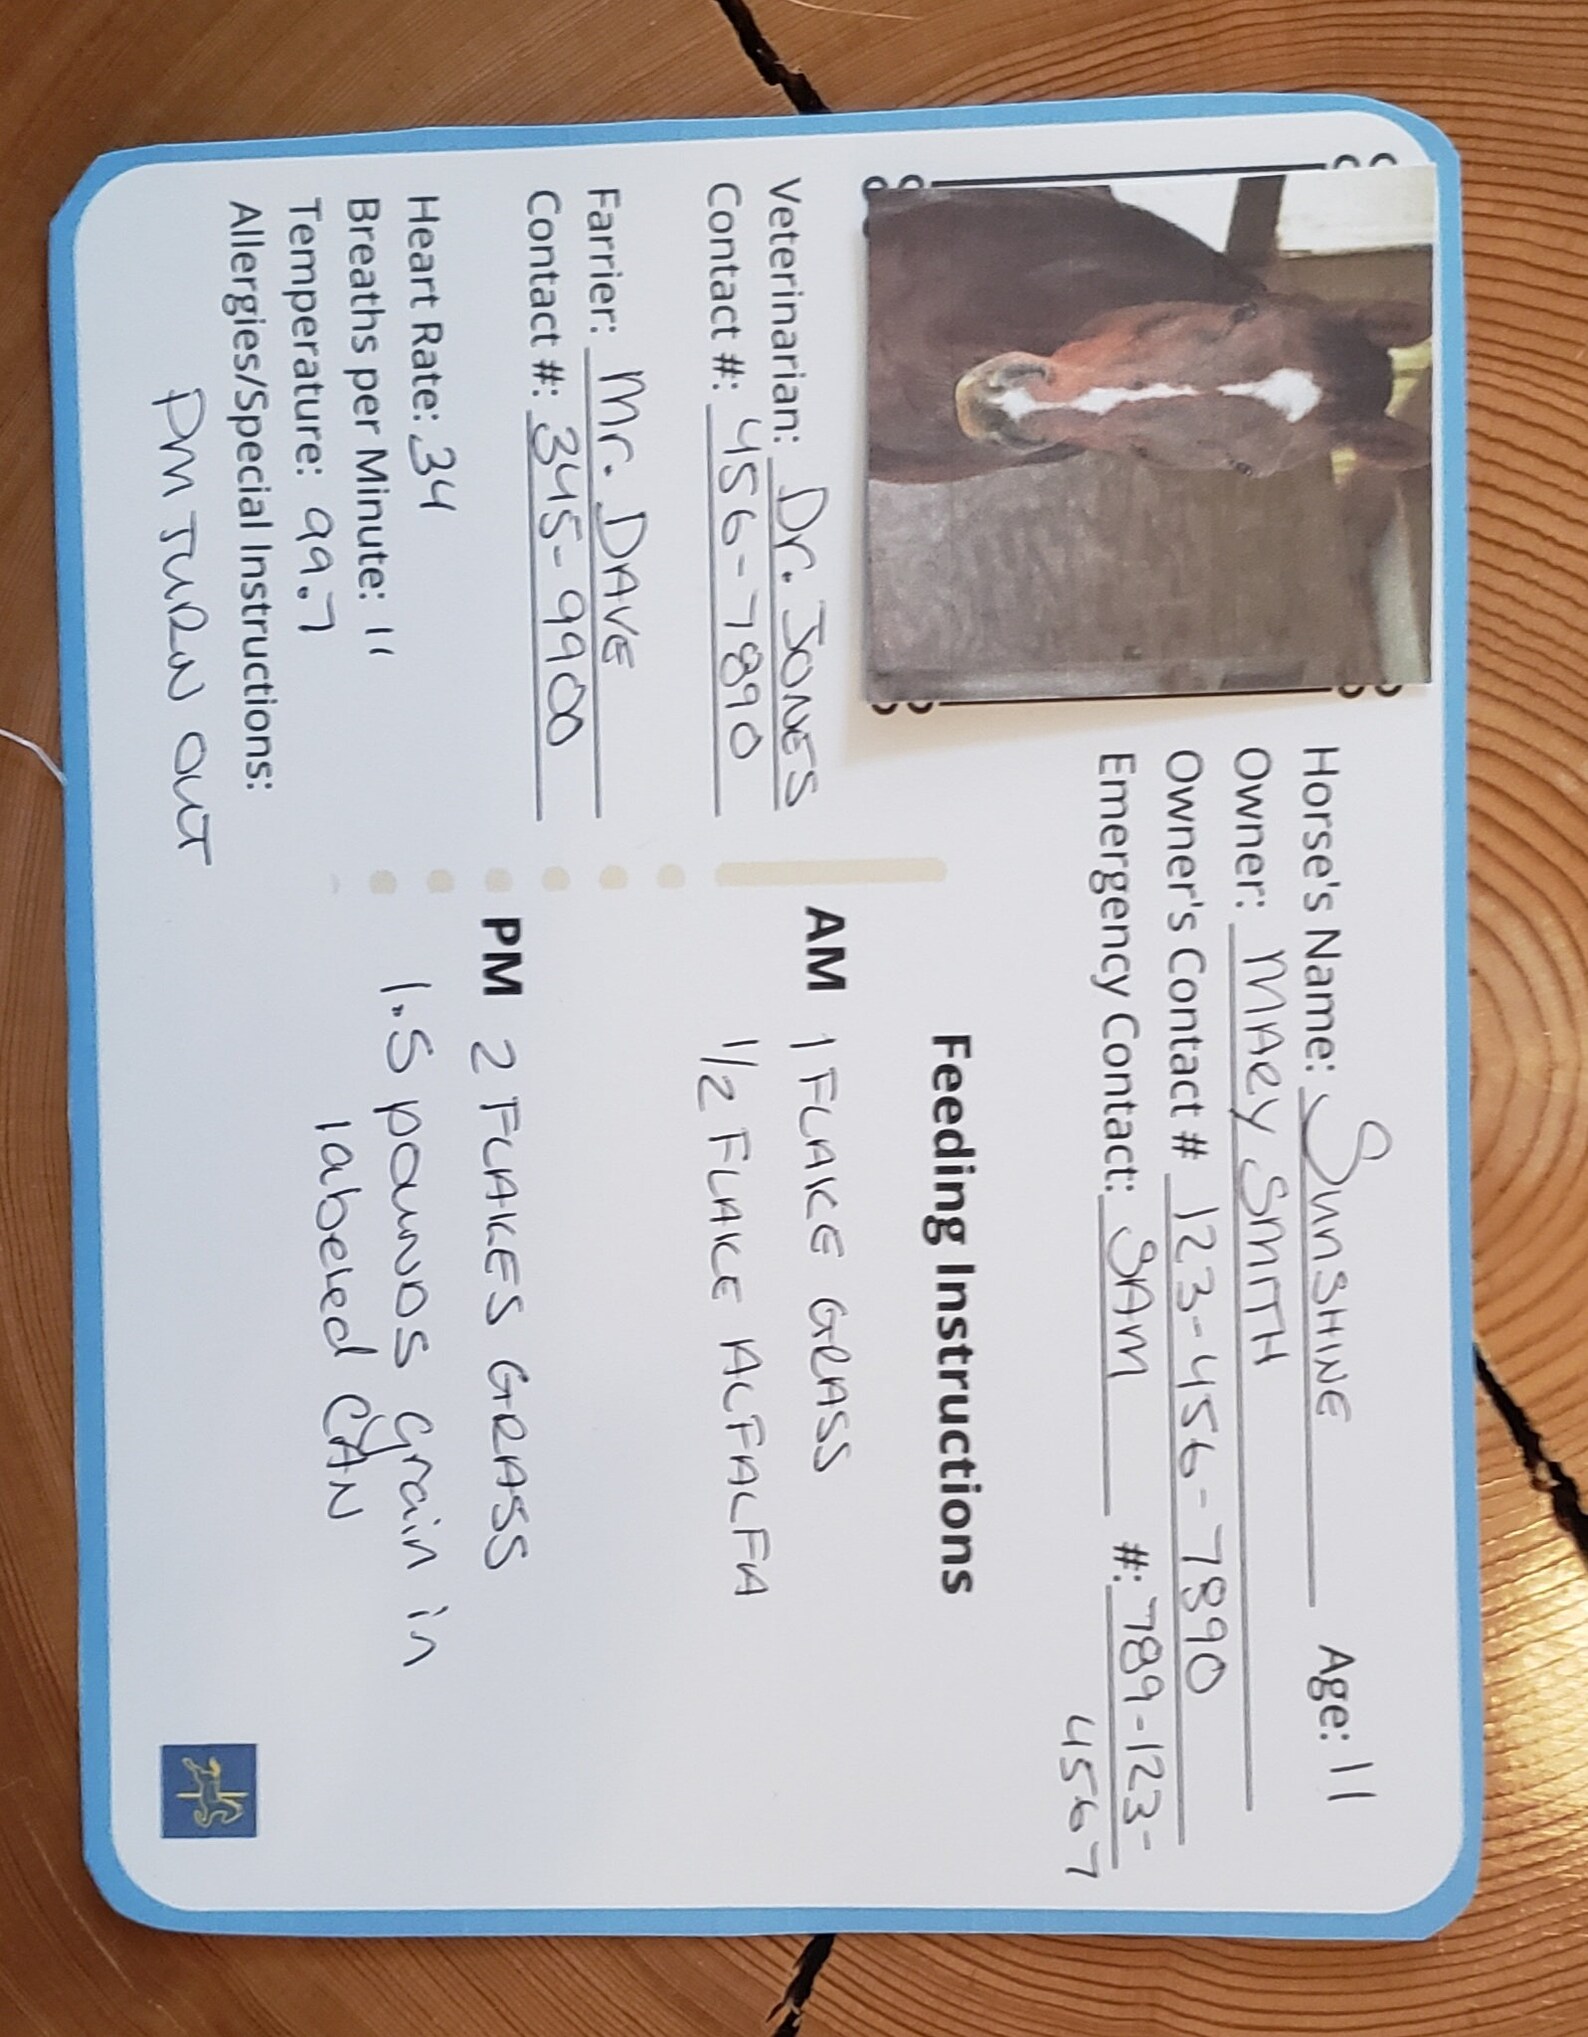 Horse's Name: SunSHINE Age: 11
Owner: MARY SMITH
Owner's Contact # 123-456-7890
Emergency Contact: SAM #: 789-123-
4567
Veterinarian: Dr. JONES
Contact #: 456-7890
Farrier: Mr. DAVE
Contact #: 345-9900
Heart Rate: 34
Breaths per Minute: 11
Temperature: 99.7
Allergies/Special Instructions:
PM TURN OUT
Feeding Instructions
AM 1 FLAKE GRASS
1/2 FLAKE ALFALFA
PM 2 FLAKES GRASS
1.5 pounds Grain in
labeled CAN